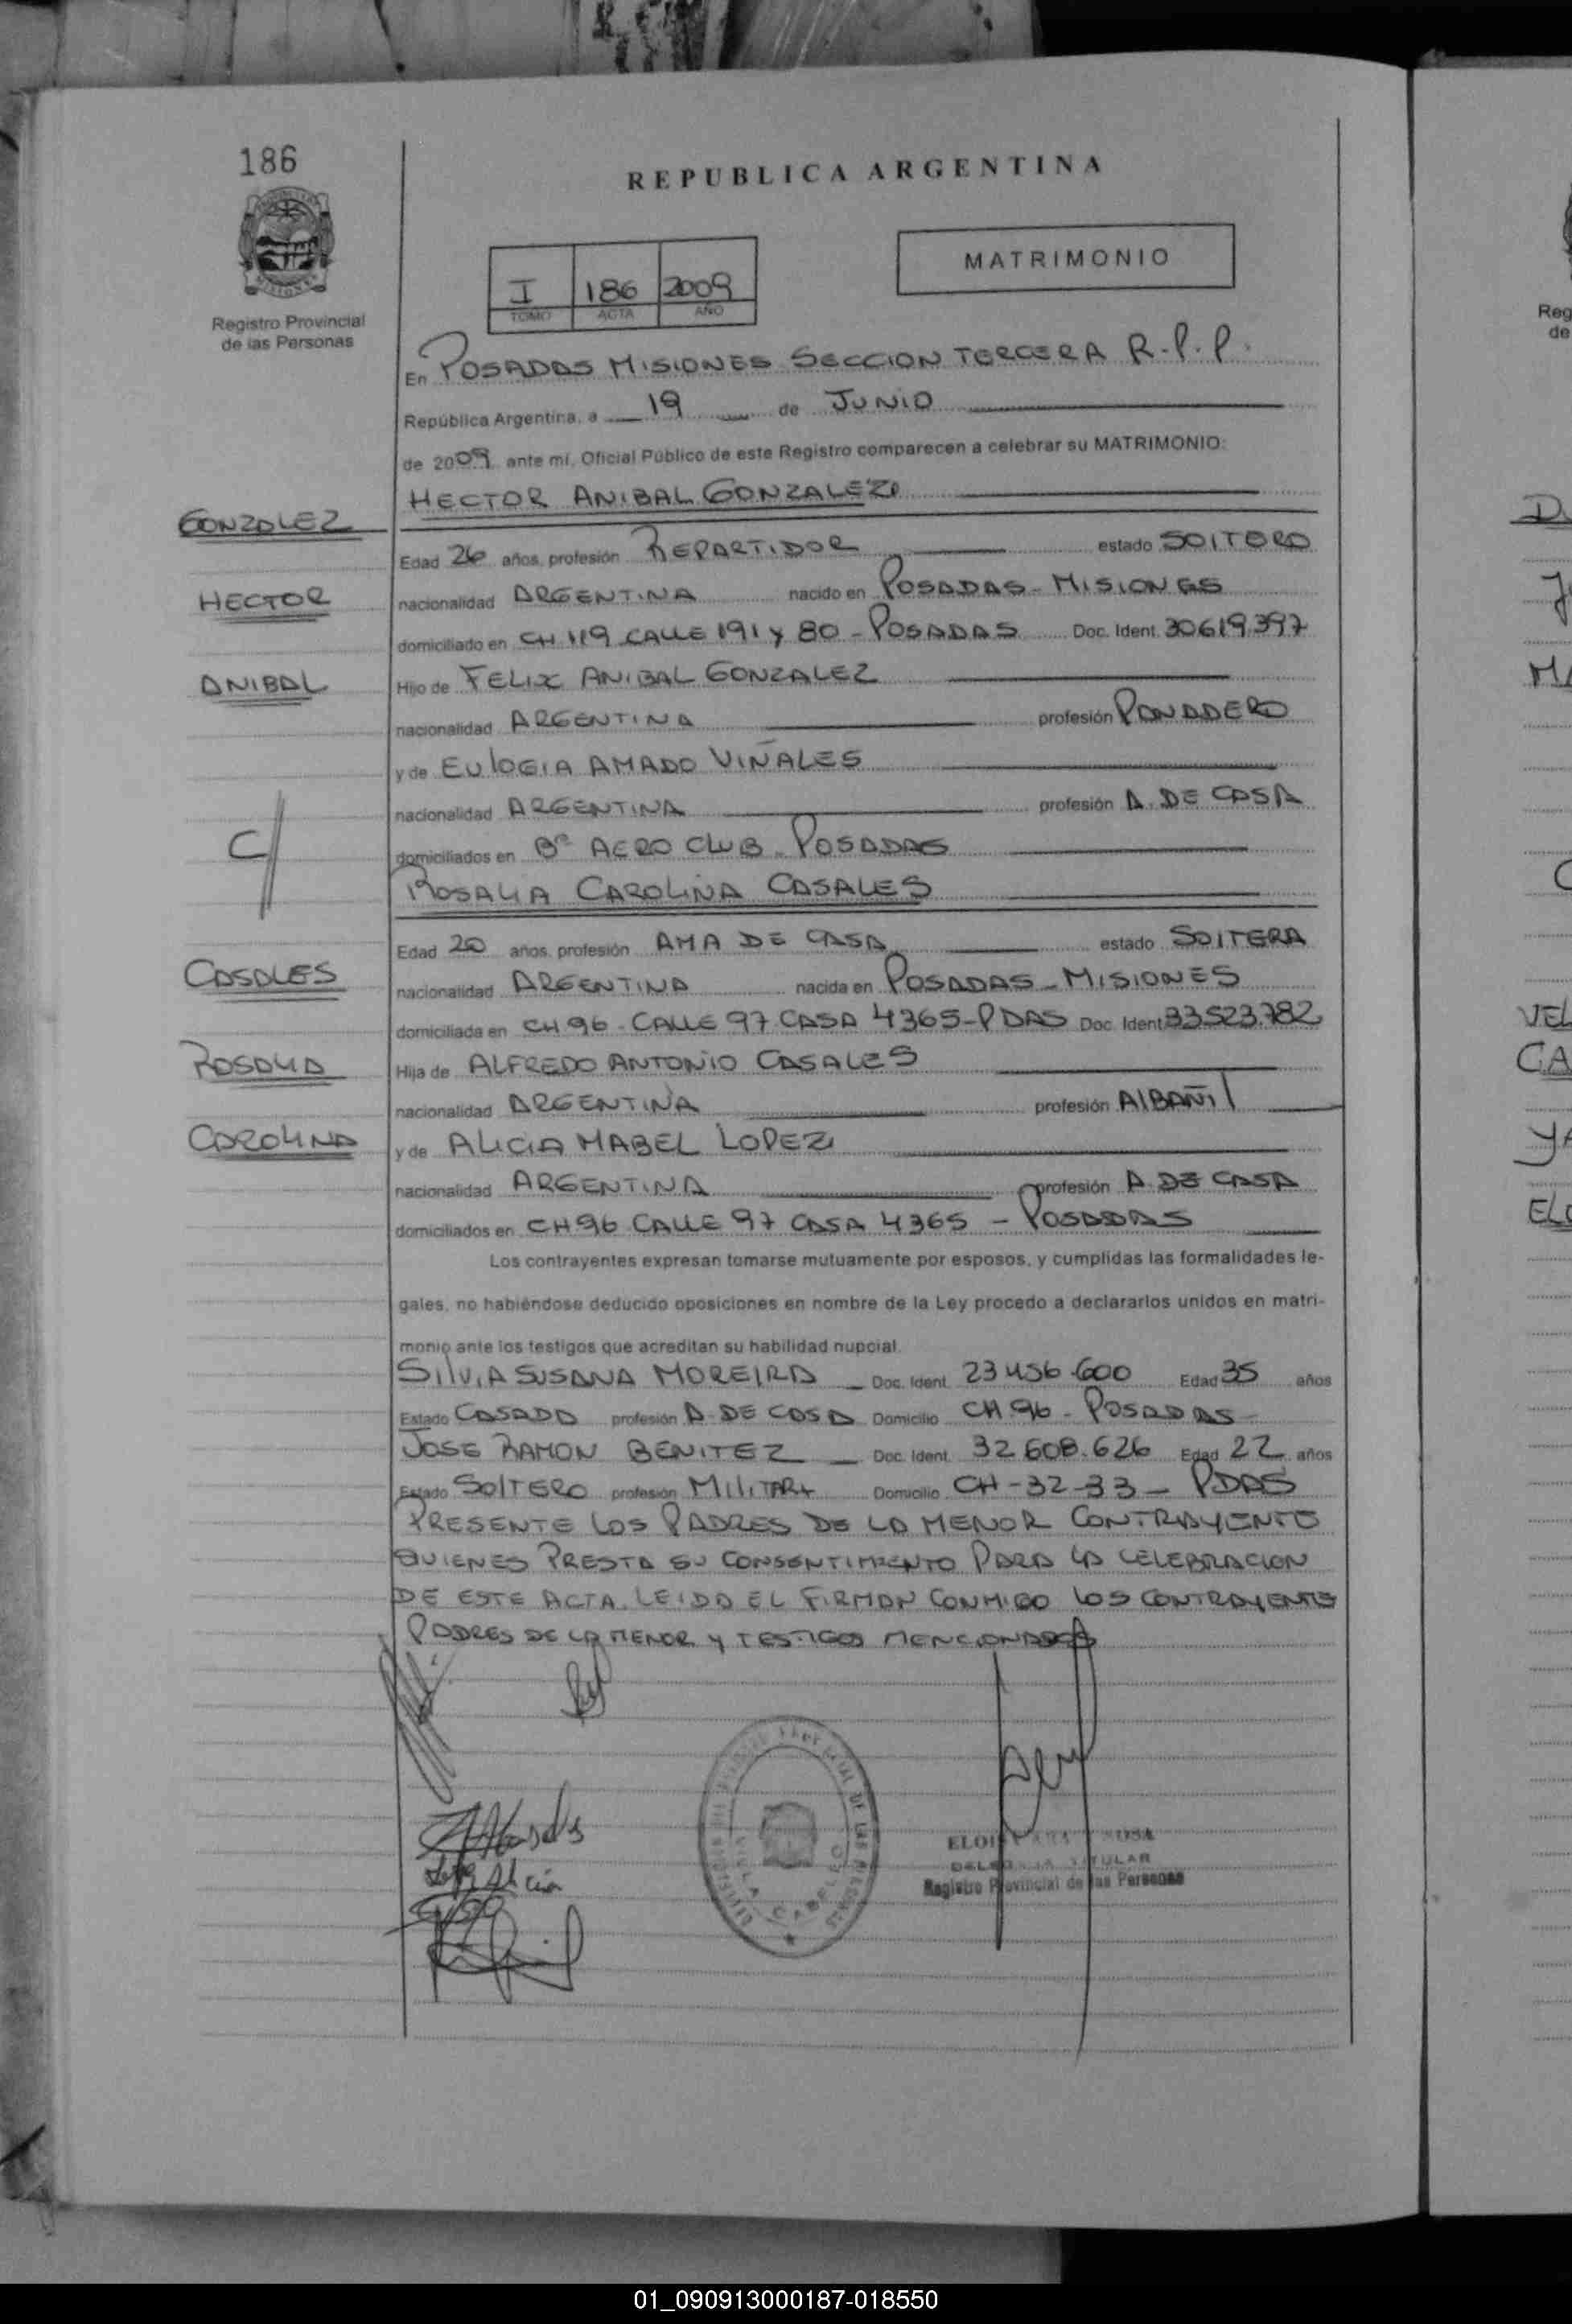 186
REPUBLICA ARGENTINA
MATRIMONIO
I 186 2009
TOMO ACTA AÑO
Registro Provincial
de las Personas
En POSADAS MISIONES SECCION TERCERA R.P.P.
República Argentina, a 19 de JUNIO
de 2009 ante mí, Oficial Público de este Registro comparecen a celebrar su MATRIMONIO:
HECTOR ANIBAL GONZALEZ
GONZALEZ
Edad 26 años, profesión REPARTIDOR estado SOLTERO
HECTOR
nacionalidad ARGENTINA nacido en POSADAS - MISIONES
domiciliado en CH 119 CALLE 191 y 80 - POSADAS Doc. Ident. 30619397
ANIBAL
Hijo de FELIX ANIBAL GONZALEZ
nacionalidad ARGENTINA profesión PANADERO
y de EULOGIA AMADO VIÑALES
nacionalidad ARGENTINA profesión A. DE CASA
C/
domiciliados en Bº AERO CLUB - POSADAS
ROSALIA CAROLINA CASALES
Edad 20 años, profesión AMA DE CASA estado SOLTERA
CASALES
nacionalidad ARGENTINA nacida en POSADAS - MISIONES
domiciliada en CH 96 - CALLE 97 CASA 4365 - PDAS Doc. Ident. 33.523.782
ROSALIA
Hija de ALFREDO ANTONIO CASALES
nacionalidad ARGENTINA profesión ALBAÑIL
CAROLINA
y de ALICIA MABEL LOPEZ
nacionalidad ARGENTINA profesión A. DE CASA
domiciliados en CH 96 CALLE 97 CASA 4365 - POSADAS
Los contrayentes expresan tomarse mutuamente por esposos, y cumplidas las formalidades le-
gales, no habiéndose deducido oposiciones en nombre de la Ley procedo a declararlos unidos en matri-
monio ante los testigos que acreditan su habilidad nupcial.
SILVIA SUSANA MOREIRA - Doc. Ident. 23 456.600 Edad 35 años
Estado CASADA profesión A. DE CASA Domicilio CH 96 - POSADAS
JOSE RAMON BENITEZ - Doc. Ident. 32.608.626 Edad 22 años
Estado SOLTERO profesión MILITAR Domicilio CH - 32-33 - PDAS
PRESENTE LOS PADRES DE LA MENOR CONTRAYENTE
QUIENES PRESTA SU CONSENTIMIENTO PARA LA CELEBRACION
DE ESTE ACTA. LEIDA EL FIRMAN CONMIGO LOS CONTRAYENTES
PADRES DE LA MENOR Y TESTIGOS MENCIONADOS
TITULAR
Registro Provincial de las Personas
VILLA CABELLO
01_090913000187-018550